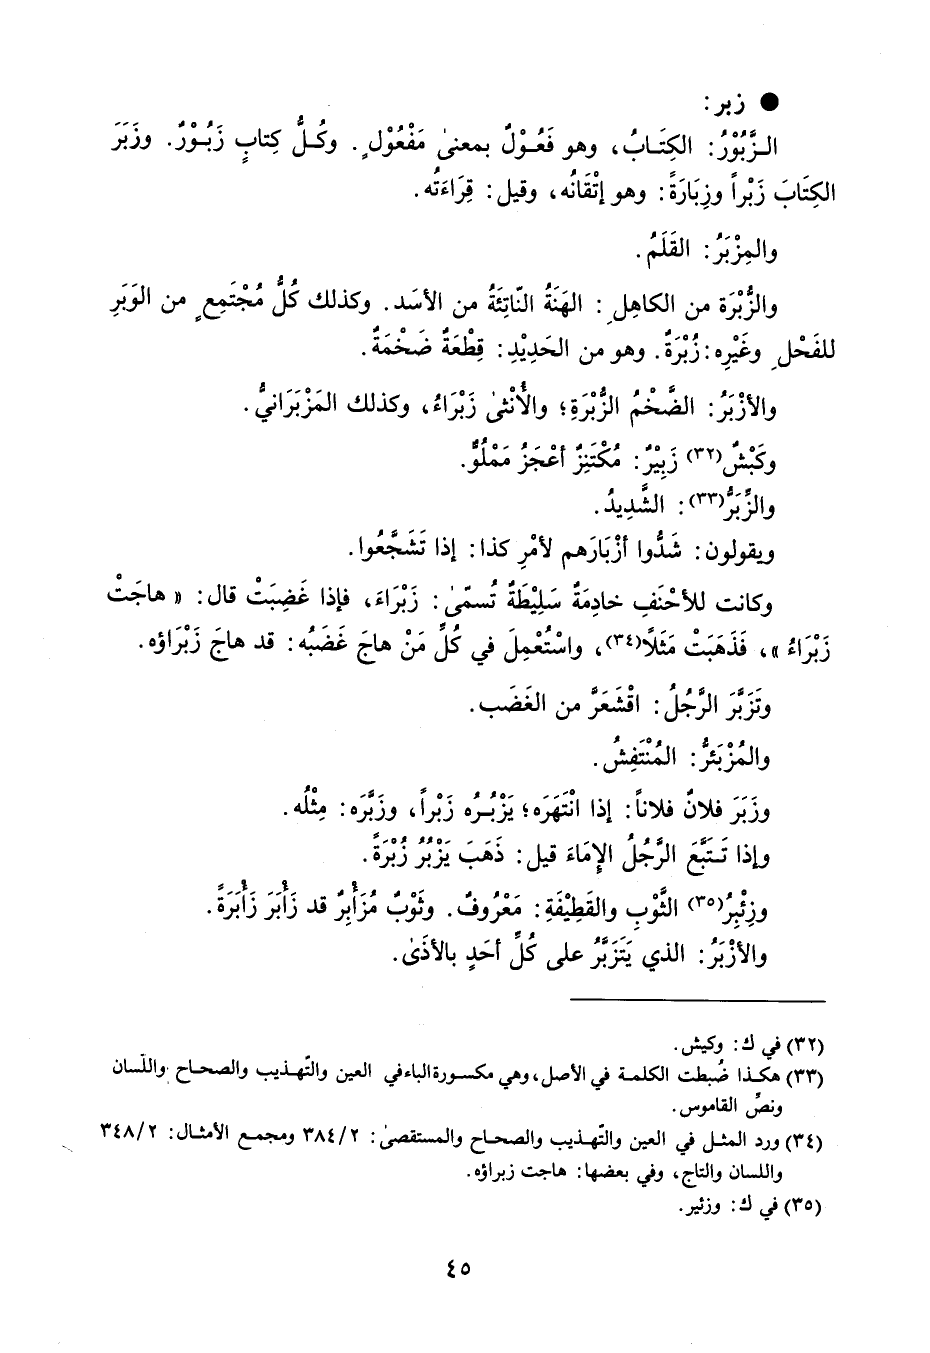 ● زبر:
الـزَّبُوْرُ: الكِتَـابُ، وهو فَعُـوْلٌ بمعنىٰ مَفْعُوْلٍ. وكُـلُّ كِتابٍ زَبُـوْرٌ. وزَبَرَ
الكِتَابَ زَبْراً وزِبَارَةً: وهو إتْقَانُه، وقيل: قِرَاءَتُه.
والمِزْبَرُ: القَلَمُ.
والزُّبْرَة من الكاهِلِ: الهَنَةُ النّاتِئَةُ من الأسَد. وكذلك كُلُّ مُجْتَمِعٍ من الوَبَرِ
للفَحْلِ وغَيْرِه: زُبْرَةٌ. وهو من الحَدِيْدِ: قِطْعَةٌ ضَخْمَةٌ.
والأزْبَرُ: الضَّخْمُ الزُّبْرَةِ؛ والأُنْثىٰ زَبْرَاءُ، وكذلك المَزْبَرَانيُّ.
وكَبْشٌ(٣٢) زَبِيْرٌ: مُكْتَنِزٌ أعْجَزُ مَمْلُوٌّ.
والزِّبَرُّ(٣٣): الشَّدِيدُ.
ويقولون: شَدُّوا أزْبَارَهم لأمْرِ كذا: إذا تَشَجَّعُوا.
وكانت للأحْنَفِ خادِمَةٌ سَلِيْطَةٌ تُسمّىٰ: زَبْرَاءَ، فإذا غَضِبَتْ قال: « هاجَتْ
زَبْرَاءُ »، فَذَهَبَتْ مَثَلًا(٣٤)، واسْتُعْمِلَ في كُلِّ مَنْ هاجَ غَضَبُه: قد هاجَ زَبْرَاؤه.
وتَزَبَّرَ الرَّجُلُ: اقْشَعَرَّ من الغَضَب.
والمُزْبَئرُّ: المُنْتَفِشُ.
وزَبَرَ فلانٌ فلاناً: إذا انْتَهَرَه؛ يَزْبُـرُه زَبْراً، وزَبَّرَه: مِثْلُه.
وإذا تَـتَبَّعَ الرَّجُلُ الإمَاءَ قيل: ذَهَبَ يَزْبُرُ زُبْرَةً.
وزِئْبِرُ(٣٥) الثَّوْبِ والقَطِيْفَةِ: مَعْرُوفٌ. وثَوْبٌ مُزَأْبِرٌ قد زَأْبَرَ زَأْبَرَةً.
والأزْبَرُ: الذي يَتَزَبَّرُ على كُلِّ أحَدٍ بالأذىٰ.
(٣٢) في ك: وكيش.
(٣٣) هكـذا ضُبطت الكلمـة في الأصل، وهي مكسـورة الباء في العين والتّهـذيب والصحـاح واللّسان
ونصِّ القاموس.
(٣٤) ورد المثـل في العين والتّهـذيب والصحـاح والمستقصىٰ: ٣٨٤/٢ ومجمـع الأمثـال: ٣٤٨/٢
واللسان والتاج، وفي بعضها: هاجت زبراؤه.
(٣٥) في ك: وزئير.
٤٥